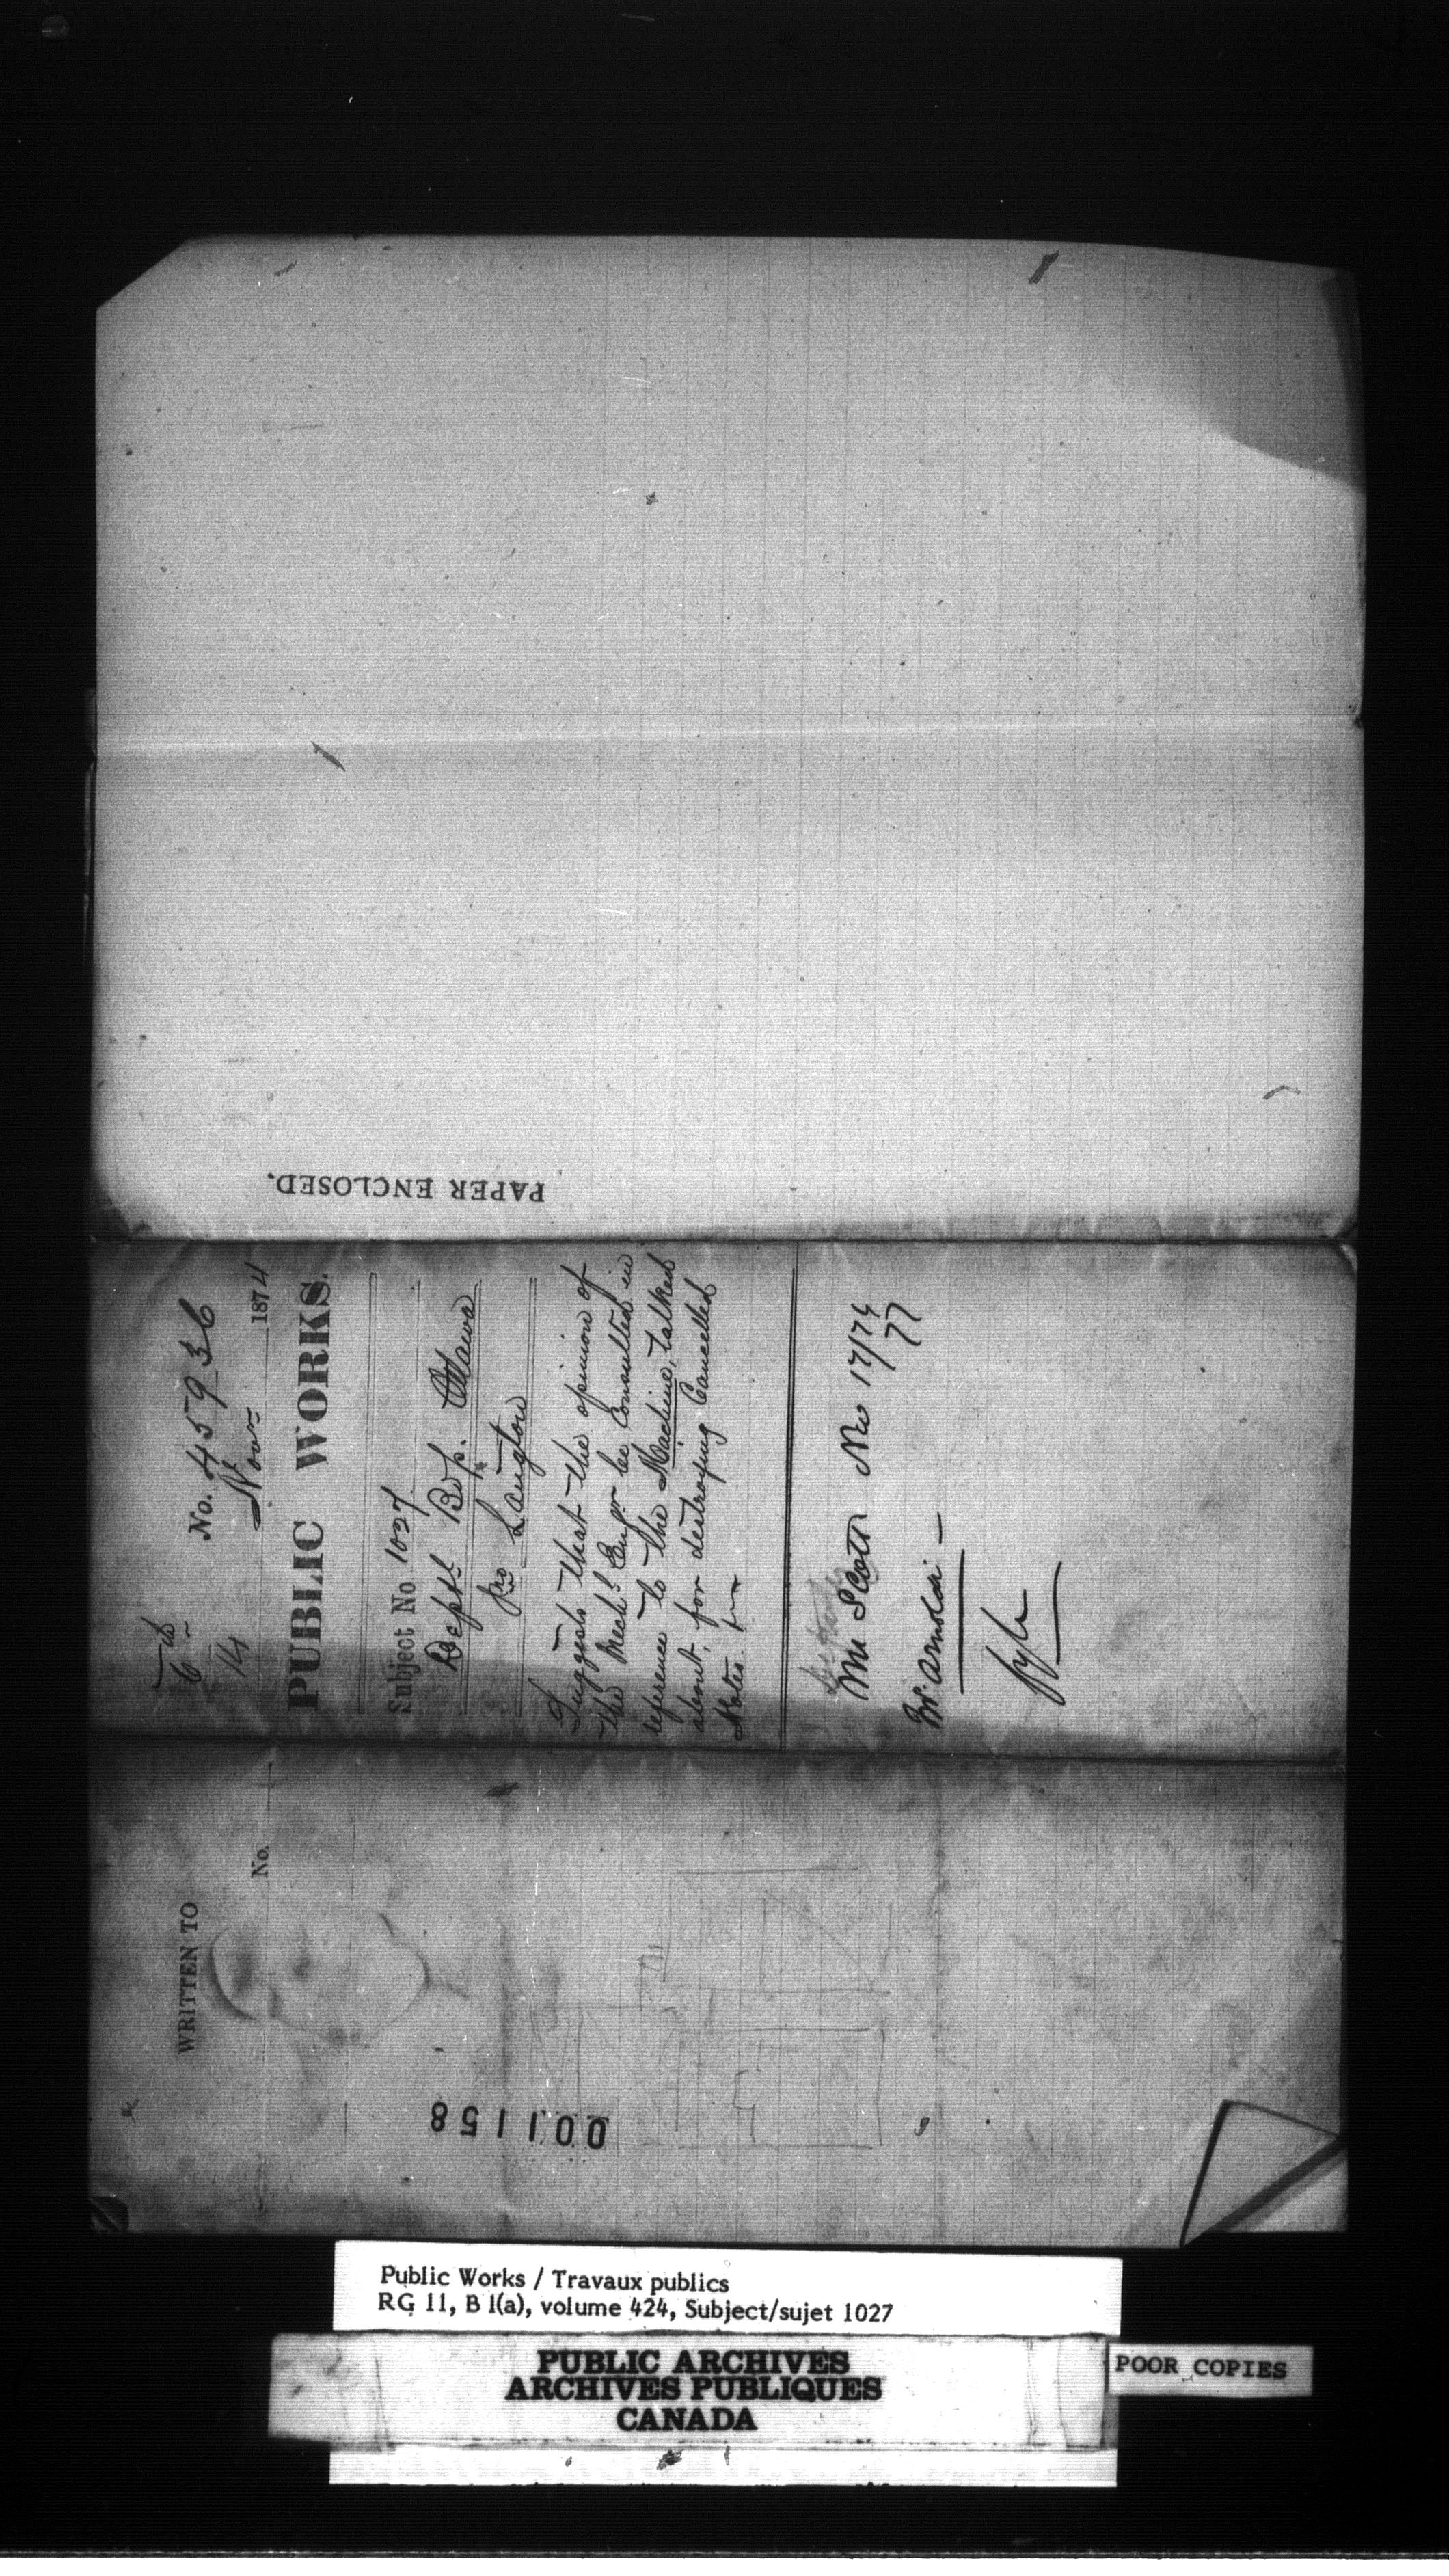 PAPER ENCLOSED.
No. 45936
14 Nov 1874
PUBLIC WORKS.
Subject No 1027
Dept Ottawa
Jno Langton
Suggests that the opinion of
the Mechl Engr be Consulted in
reference to the Machine, talked
about, for destroying Cancelled
Notes.
Mr Scott No 17/74
77
Mr. Arnoldi —
WRITTEN TO
No.
001158
Public Works / Travaux publics
RG 11, B 1(a), volume 424, Subject/sujet 1027
PUBLIC ARCHIVES
ARCHIVES PUBLIQUES
CANADA
POOR COPIES